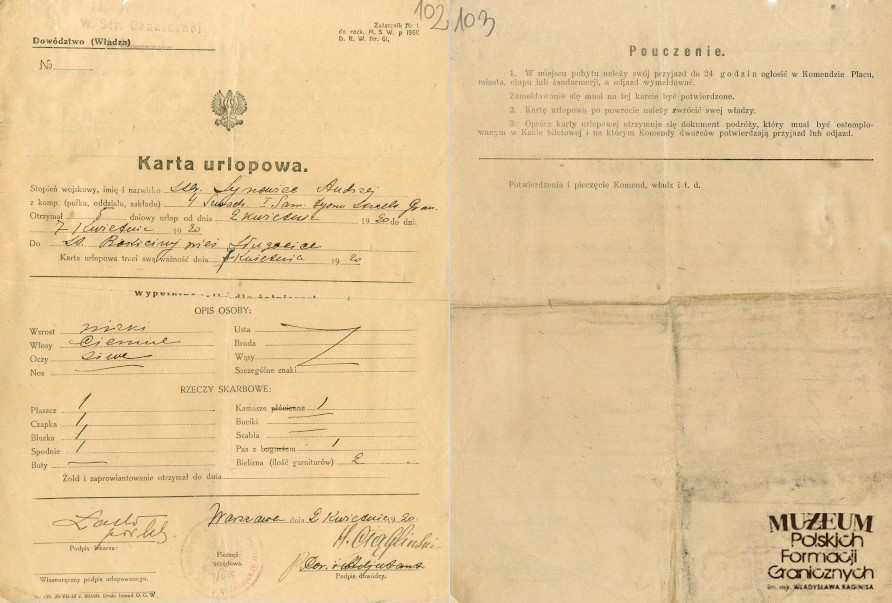 102, 103
W. Str. Granicznej
Dowództwo (Władza)
Załącznik Nr 1
do rozk. M. S. W. p 1960
D. R. W. Nr. 61.
№
Karta urlopowa.
Stopień wojskowy, imię i nazwisko Synowiec Andrzej
z komp. (pułku, oddziału, zakładu) 4 I Sam. dyonu Strzelc. Gran.
Otrzymał 5 dniowy urlop od dnia 2 kwietnia 1920 do dnia
7 kwietnia 1920
Do wieś
Karta urlopowa traci swą ważność dnia 7 kwietnia 1920
OPIS OSOBY:
Wzrost niski
Włosy ciemne
Oczy siwe
Nos
Usta
Broda
Wąsy
Szczególne znaki
RZECZY SKARBOWE:
Płaszcz 1
Czapka 1
Bluzka 1
Spodnie 1
Buty —
Kamasze płócienne 1
Buciki —
Szabla —
Pas z bagnetem 1
Bielizna (ilość garniturów) 2
Żołd i zaprowiantowanie otrzymał do dnia
Warszawa dnia 2 kwietnia 1920.
Podpis lekarza:
Pieczęć
urzędowa.
Podpis dowódcy.
Własnoręczny podpis urlopowanego.
Pouczenie.
1. W miejscu pobytu należy swój przyjazd do 24 godzin ogłosić w Komendzie Placu,
miasta, etapu lub żandarmerji, a odjazd wymeldować.
Zameldowanie się musi na tej karcie być potwierdzone.
2. Kartę urlopową po powrocie należy zwrócić swej władzy.
3. Oprócz karty urlopowej otrzymuje się dokument podróży, który musi być ostemplo-
wanym w Kasie biletowej i na którym Komendy dworców potwierdzają przyjazd lub odjazd.
Potwierdzenia i pieczęcie Komend, władz i t. d.
MUZEUM
Polskich
Formacji
Granicznych
im. mjr. WŁADYSŁAWA RAGINISA